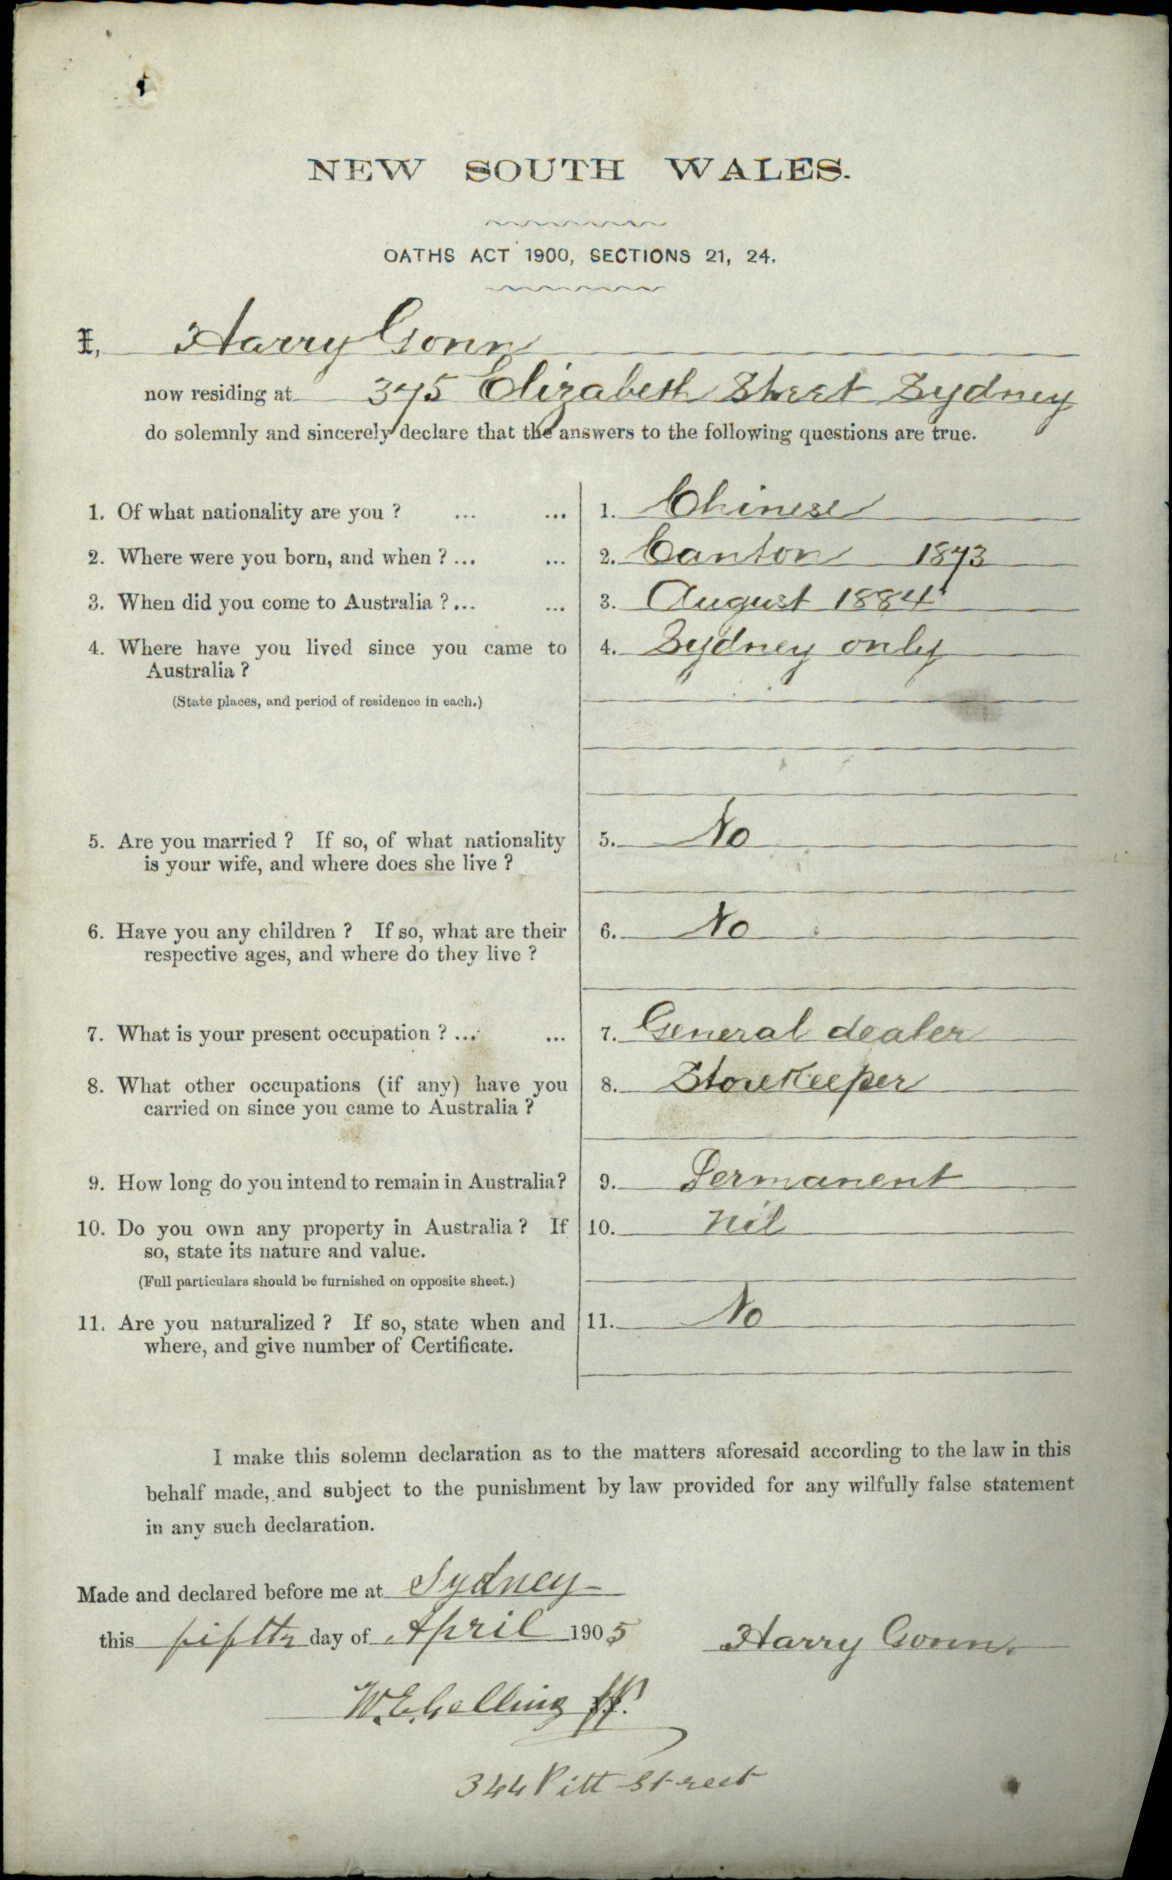 NEW SOUTH WALES.
OATHS ACT 1900, SECTIONS 21, 24.
I, Harry Gonn
now residing at 375 Elizabeth Street Sydney
do solemnly and sincerely declare that the answers to the following questions are true.
1. Of what nationality are you ? ... ... 1. Chinese
2. Where were you born, and when ? ... ... 2. Canton 1873
3. When did you come to Australia ? ... ... 3. August 1884
4. Where have you lived since you came to 4. Sydney only
Australia ?
(State places, and period of residence in each.)
5. Are you married ? If so, of what nationality 5. No
is your wife, and where does she live ?
6. Have you any children ? If so, what are their 6. No
respective ages, and where do they live ?
7. What is your present occupation ? ... ... 7. General dealer
8. What other occupations (if any) have you 8. Storekeeper
carried on since you came to Australia ?
9. How long do you intend to remain in Australia? 9. Permanent
10. Do you own any property in Australia ? If 10. Nil
so, state its nature and value.
(Full particulars should be furnished on opposite sheet.)
11. Are you naturalized ? If so, state when and 11. No
where, and give number of Certificate.
I make this solemn declaration as to the matters aforesaid according to the law in this
behalf made, and subject to the punishment by law provided for any wilfully false statement
in any such declaration.
Made and declared before me at Sydney
this fifth day of April 1905 Harry Gonn.
W. E. Gelling J.P.
344 Pitt Street